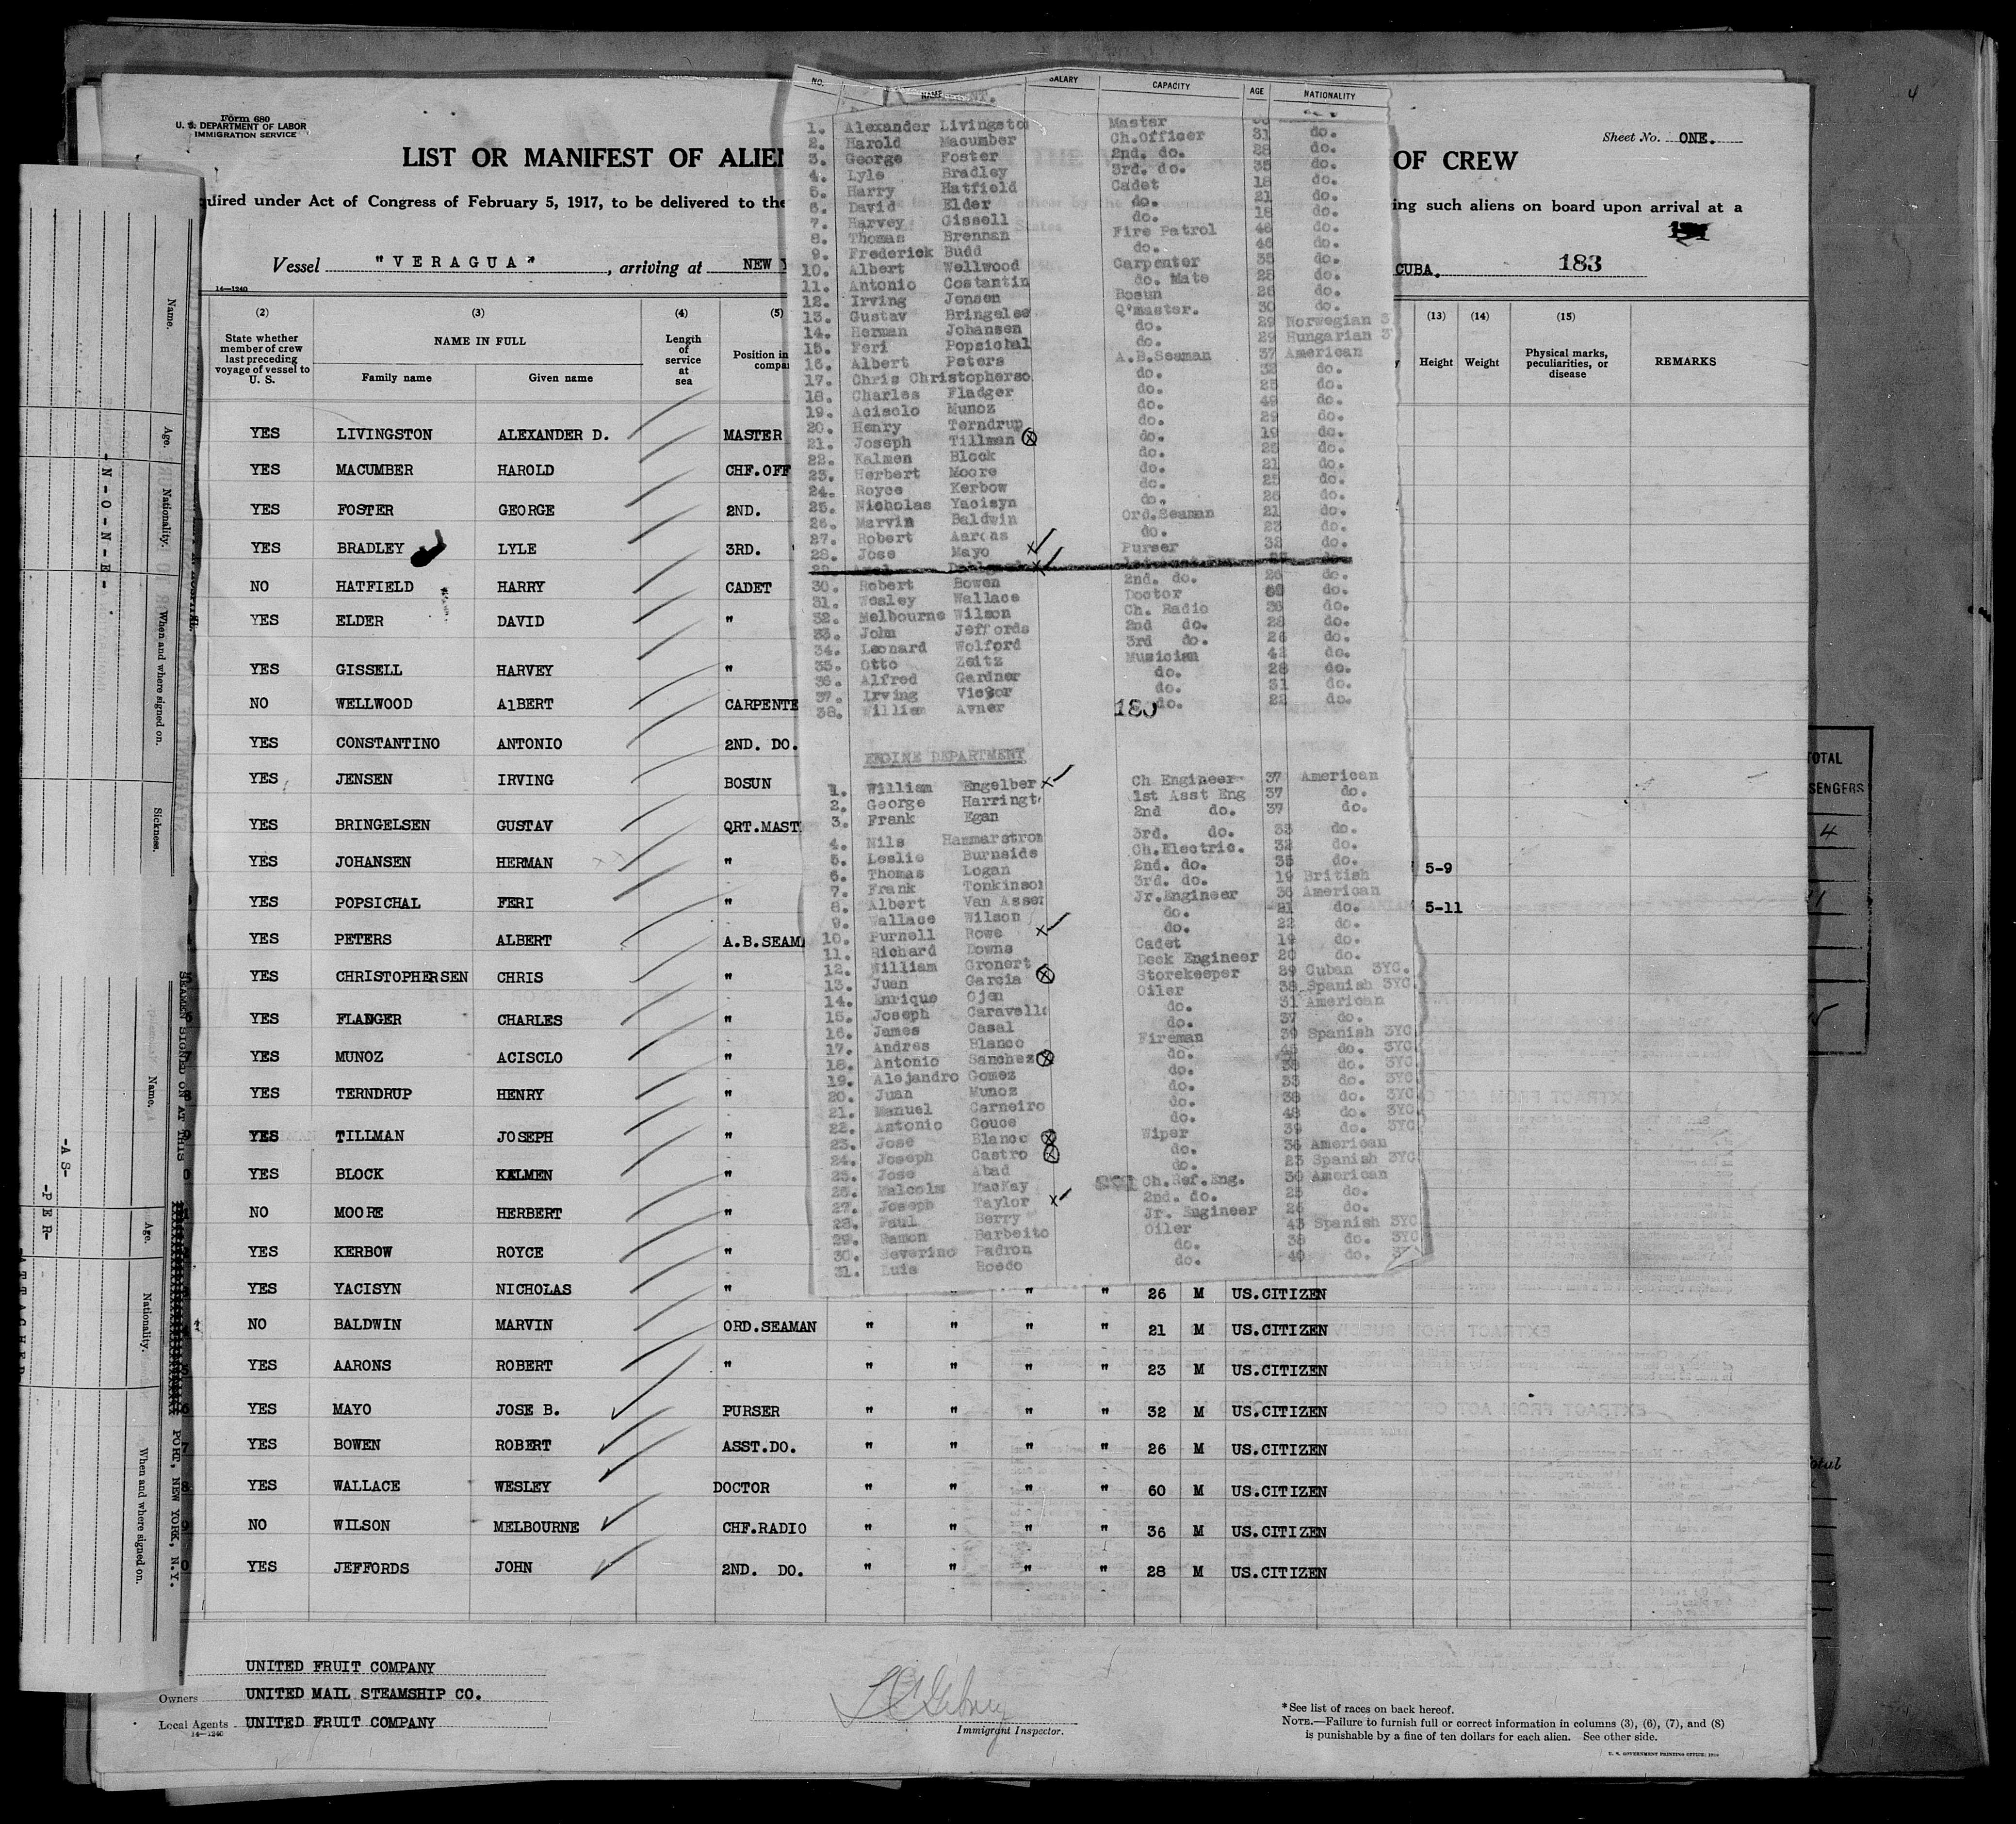 Form 680
U. S. DEPARTMENT OF LABOR
IMMIGRATION SERVICE
Sheet No. ONE.
LIST OR MANIFEST OF ALIEN
OF CREW
quired under Act of Congress of February 5, 1917, to be delivered to the
ing such aliens on board upon arrival at a
Vessel "VERAGUA", arriving at NEW
CUBA. 183
14—1240
(2) (3) (4) (5) (13) (14) (15)
State whether member of crew last preceding voyage of vessel to U. S.
NAME IN FULL
Family name Given name
Length of service at sea
Position in
Height Weight
Physical marks, peculiarities, or disease
REMARKS
YES LIVINGSTON ALEXANDER D. MASTER
YES MACUMBER HAROLD CHF.OFF
YES FOSTER GEORGE 2ND.
YES BRADLEY LYLE 3RD.
NO HATFIELD HARRY CADET
YES ELDER DAVID "
YES GISSELL HARVEY "
NO WELLWOOD AlBERT CARPENTE
YES CONSTANTINO ANTONIO 2ND. DO.
YES JENSEN IRVING BOSUN
YES BRINGELSEN GUSTAV QRT.MAST
YES JOHANSEN HERMAN " 5-9
YES POPSICHAL FERI " 5-11
YES PETERS ALBERT A.B.SEAMA
YES CHRISTOPHERSEN CHRIS "
YES FLANGER CHARLES "
YES MUNOZ ACISCLO "
YES TERNDRUP HENRY "
YES TILLMAN JOSEPH "
YES BLOCK KALMEN "
NO MOORE HERBERT "
YES KERBOW ROYCE "
YES YACISYN NICHOLAS " " " " 26 M US.CITIZEN
NO BALDWIN MARVIN ORD.SEAMAN " " " " 21 M US.CITIZEN
YES AARONS ROBERT " " " " " 23 M US.CITIZEN
YES MAYO JOSE B. PURSER " " " " 32 M US.CITIZEN
YES BOWEN ROBERT ASST.DO. " " " " 26 M US.CITIZEN
YES WALLACE WESLEY DOCTOR " " " " 60 M US.CITIZEN
NO WILSON MELBOURNE CHF.RADIO " " " " 36 M US.CITIZEN
YES JEFFORDS JOHN 2ND. DO. " " " " 28 M US.CITIZEN
UNITED FRUIT COMPANY
Owners UNITED MAIL STEAMSHIP CO.
Local Agents UNITED FRUIT COMPANY
14—1240
Immigrant Inspector.
*See list of races on back hereof.
NOTE.—Failure to furnish full or correct information in columns (3), (6), (7), and (8)
is punishable by a fine of ten dollars for each alien. See other side.
NO. NAME SALARY CAPACITY AGE NATIONALITY
1. Alexander Livingsto Master do.
2. Harold Macumber Ch.Officer 31 do.
3. George Foster 2nd. do. 28 do.
4. Lyle Bradley 3rd. do. 35 do.
5. Harry Hatfield Cadet 18 do.
6. David Elder do. 21 do.
7. Harvey Gissell do. 18 do.
8. Thomas Brennan Fire Patrol 46 do.
9. Frederick Budd do. 46 do.
10. Albert Wellwood Carpenter 35 do.
11. Antonio Costantin do. Mate 28 do.
12. Irving Jensen Bosun 26 do.
13. Gustav Bringelse Q'master. 30 do.
14. Herman Johansen do. 29 Norwegian 3
15. Feri Popsichal do. 29 Hungarian 3
16. Albert Peters A.B.Seaman 37 American
17. Chris Christopherso do. 32 do.
18. Charles Fladger do. 25 do.
19. Acisclo Munoz do. 49 do.
20. Henry Terndrup do. 29 do.
21. Joseph Tillman do. 19 do.
22. Kalmen Block do. 25 do.
23. Herbert Moore do. 21 do.
24. Royce Kerbow do. 25 do.
25. Nicholas Yacisyn do. 26 do.
26. Marvin Baldwin Ord.Seaman 21 do.
27. Robert Aarons do. 23 do.
28. Jose Mayo Purser 32 do.
29.
30. Robert Bowen 2nd. do. 26 do.
31. Wesley Wallace Doctor 60 do.
32. Melbourne Wilson Ch. Radio 36 do.
33. John Jeffords 2nd do. 28 do.
34. Leonard Wolford 3rd do. 26 do.
35. Otto Zeitz Musician 42 do.
36. Alfred Gardner do. 28 do.
37. Irving Victor do. 31 do.
38. William Avner do. 22 do.
180
ENGINE DEPARTMENT
1. William Engelber Ch Engineer 37 American
2. George Harringt 1st Asst Eng 37 do.
3. Frank Egan 2nd do. 37 do.
4. Nils Hammarstrom 3rd. do. 33 do.
5. Leslie Burnside Ch.Electric. 32 do.
6. Thomas Logan 2nd. do. 35 do.
7. Frank Tonkinson 3rd. do. 19 British
8. Albert Van Asse Jr.Engineer 36 American
9. Wallace Wilson do. 21 do.
10. Purnell Rowe do. 22 do.
11. Richard Downs Cadet 19 do.
12. William Gronert Deck Engineer 20 do.
13. Juan Garcia Storekeeper 29 Cuban 3YC.
14. Enrique Ojen Oiler 38 Spanish 3YC.
15. Joseph Caravell do. 31 American
16. James Casal do. 37 do.
17. Andres Blanco Fireman 39 Spanish 3YC
18. Antonio Sanchez do. 45 do. 3YC
19. Alejandro Gomez do. 38 do. 3YC
20. Juan Munoz do. 33 do. 3YC
21. Manuel Carneiro do. 38 do. 3YC
22. Antonio Couce do. 48 do. 3YC
23. Jose Blanco Wiper 39 do. 3YC
24. Joseph Castro do. 36 American
25. Jose Abad do. 23 Spanish 3YC
26. Malcolm MacKay Ch.Ref.Eng. 30 American
27. Joseph Taylor 2nd. do. 25 do.
28. Paul Berry Jr. Engineer 26 do.
29. Ramon Barbeito Oiler 43 Spanish 3YC
30. Severino Padron do. 38 do. 3YC
31. Luis Boedo do. 40 do.
Name. Age. Nationality. When and where signed on. Sickness.
-N-O-N-E-
Name. Age. Nationality. When and where signed on.
-AS-
-PER-
SEAMEN SIGNED ON AT THIS
PORT, NEW YORK, N.Y.
TOTAL
SENGERS
4